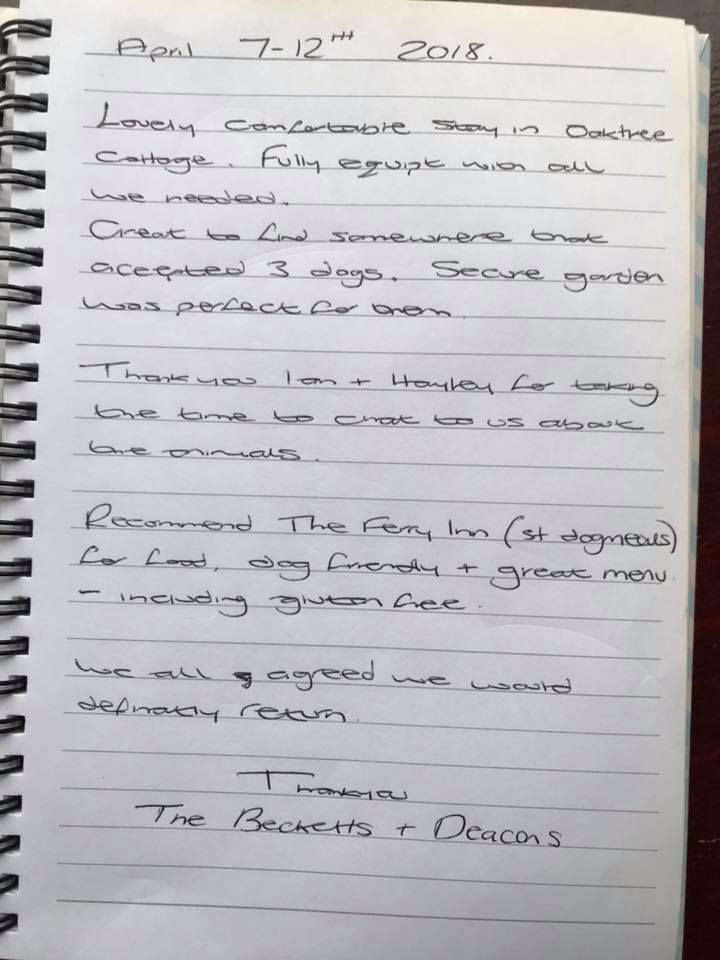 April 7-12TH 2018.
Lovely comfortable stay in Oaktree
Cottage. Fully equipt with all
we needed.
Great to find somewhere that
accepted 3 dogs. Secure garden
was perfect for them.
Thankyou Ian + Hayley for taking
the time to chat to us about
the animals.
Recommend The Ferry Inn (st dogmeals)
for food, dog friendly + great menu
- including gluten free.
We all agreed we would
definatly return.
Thankyou
The Becketts + Deacons